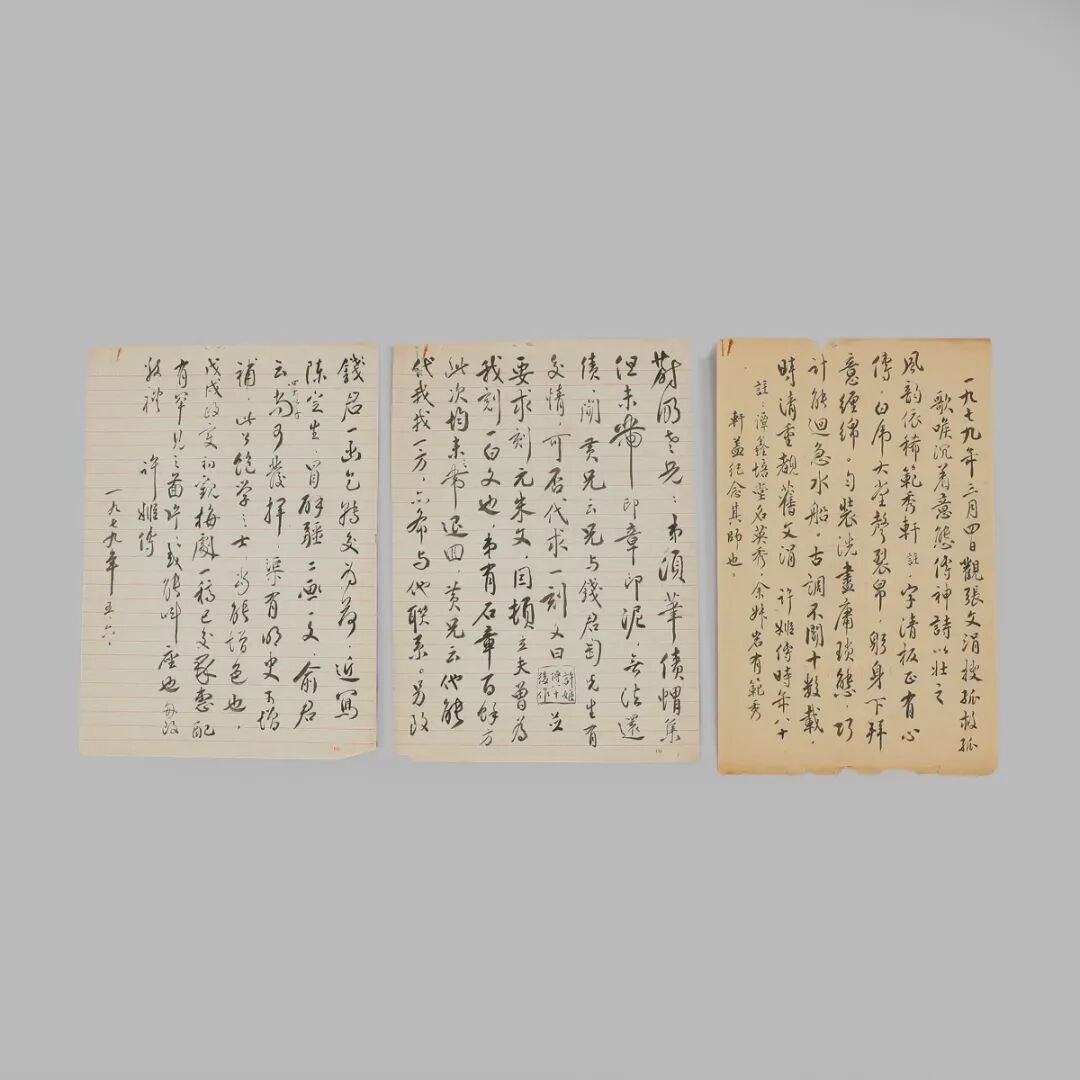 一九七九年三月四日觀張文涓搜孤救孤
歌喉沉着意態傳神詩以壯之
風韵依稀範秀軒 註，字清板正有心
傳，白虎大堂聲裂帛，躬身下拜
意纏綿。勻裝洗盡庸瑣態，巧
計能迴急水船，古調不聞十數載，
時清重覩舊文涓 許姬傳時年八十
註：譚鑫培堂名英秀，余叔岩有範秀
軒蓋紀念其師也。
蔚明老兄：弟須筆債蝟集，
但未帶印章印泥，無法還
債，聞黃兄云兄与錢君匋先生有
交情，可否代求一刻文曰 許姬傳八十後作 並
要求刻元朱文，因頓立夫曾為
我刻一白文也，弟有石章百餘方
此次均未帶，黃兄云他能
代我找一方，亦希与他聯系。另致
錢君一函乞轉交为荷，近寫
陳定生，冒辟疆二文，俞君
云尚可發揮，渠有明史可增
補，此公飽學之士，当能增色也，
戊戌政变和觀梅劇一稿已交
有罕見之圖片，或能叫座也 匆致
敬禮 許姬傳
一九七九年五．六．